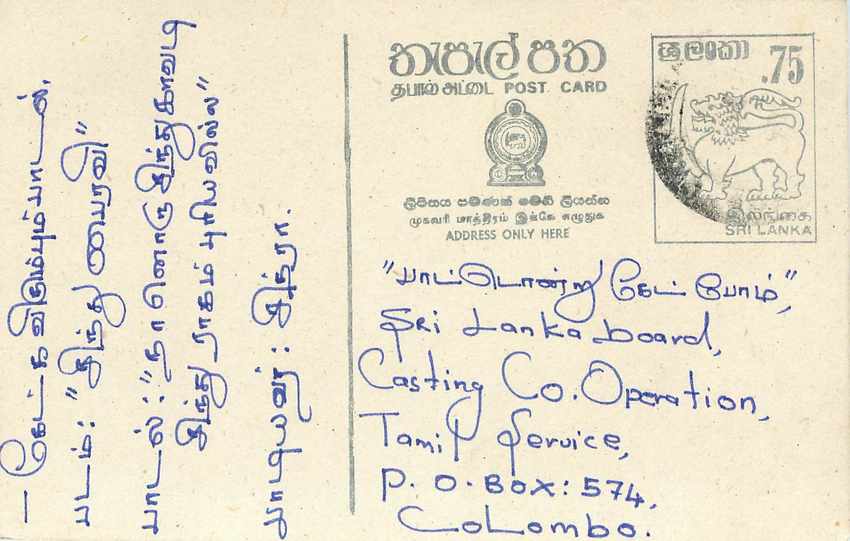 - கேட்க விரும்பும் பாடல்.
படம்: "சிந்து பைரவி"
பாடல்: "நானொரு சிந்து காவடி
சிந்து ராகம் புரியவில்ல"
பாடியவர்: சித்ரா.
තැපැල් පත
தபால் அட்டை POST CARD
ලිපිනය පමණක් මෙහි ලියන්න
முகவரி மாத்திரம் இங்கே எழுதுக
ADDRESS ONLY HERE
ශ්‍රී ලංකා
.75
இலங்கை
SRI LANKA
"பாட்டொன்று கேட்போம்",
Sri Lanka board,
Casting Co. Operation,
Tamil Service,
P. O. BOX: 574,
CoLombo.